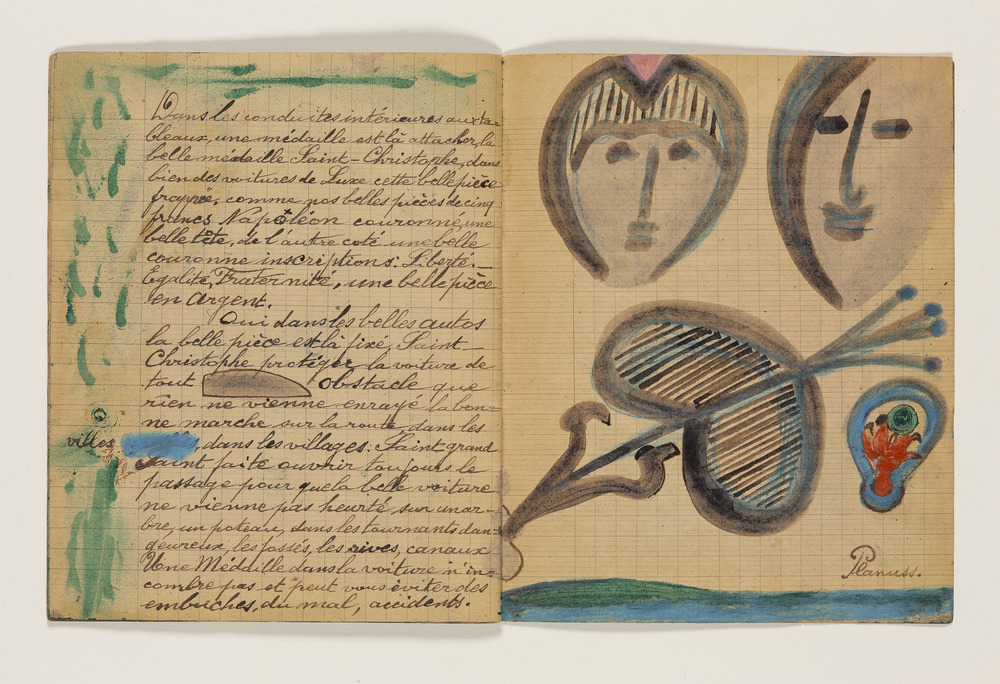 Dans les conduites intérieures aux ta-
bleaux, une médaille est là attacher, la
belle médaille Saint-Christophe, dans
bien des voitures de Luxe cette belle pièce
frappée, comme nos belles pièces de cinq
francs Napoléon couronné, une
belle tête, de l'autre coté une belle
couronne inscriptions: Liberté.—
Égalité, Fraternité, une belle pièce
en Argent.
Oui dans les belles autos
la belle pièce est là fixé, Saint—
Christophe protéger la voiture de
tout obstacle que
rien ne vienne enrayé la bon-
ne marche sur la route, dans les
villes, dans les villages: Saint grand
Saint faite ouvrir toujours le
passage pour que la belle voiture
ne vienne pas heurté sur un ar-
bre, un poteau, dans les tournants dan-
geureux, les fossés, les rives, canaux
Une Médaille dans la voiture n'in-
combre pas et peut vous éviter des
embûches, du mal, accidents.
Planuss.